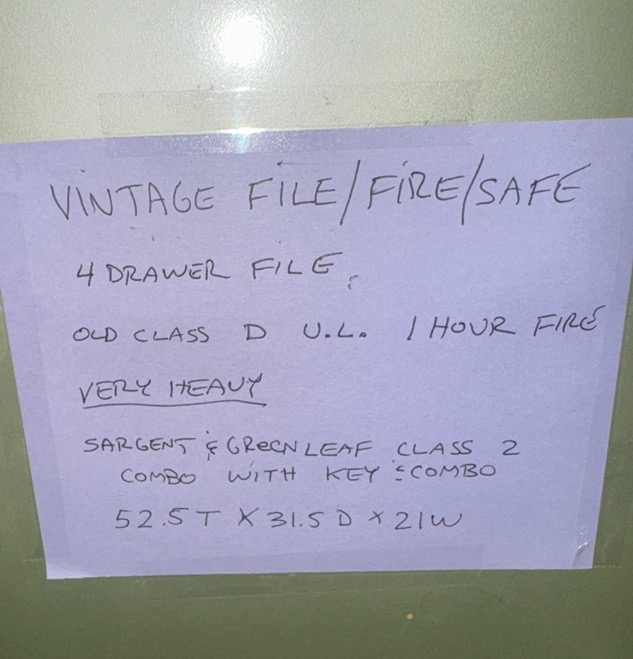 VINTAGE FILE/FIRE/SAFE
4 DRAWER FILE.
OLD CLASS D U.L. 1 HOUR FIRE
VERY HEAVY
SARGENT & GREENLEAF CLASS 2
COMBO WITH KEY & COMBO
52.5 T X 31.5 D X 21W